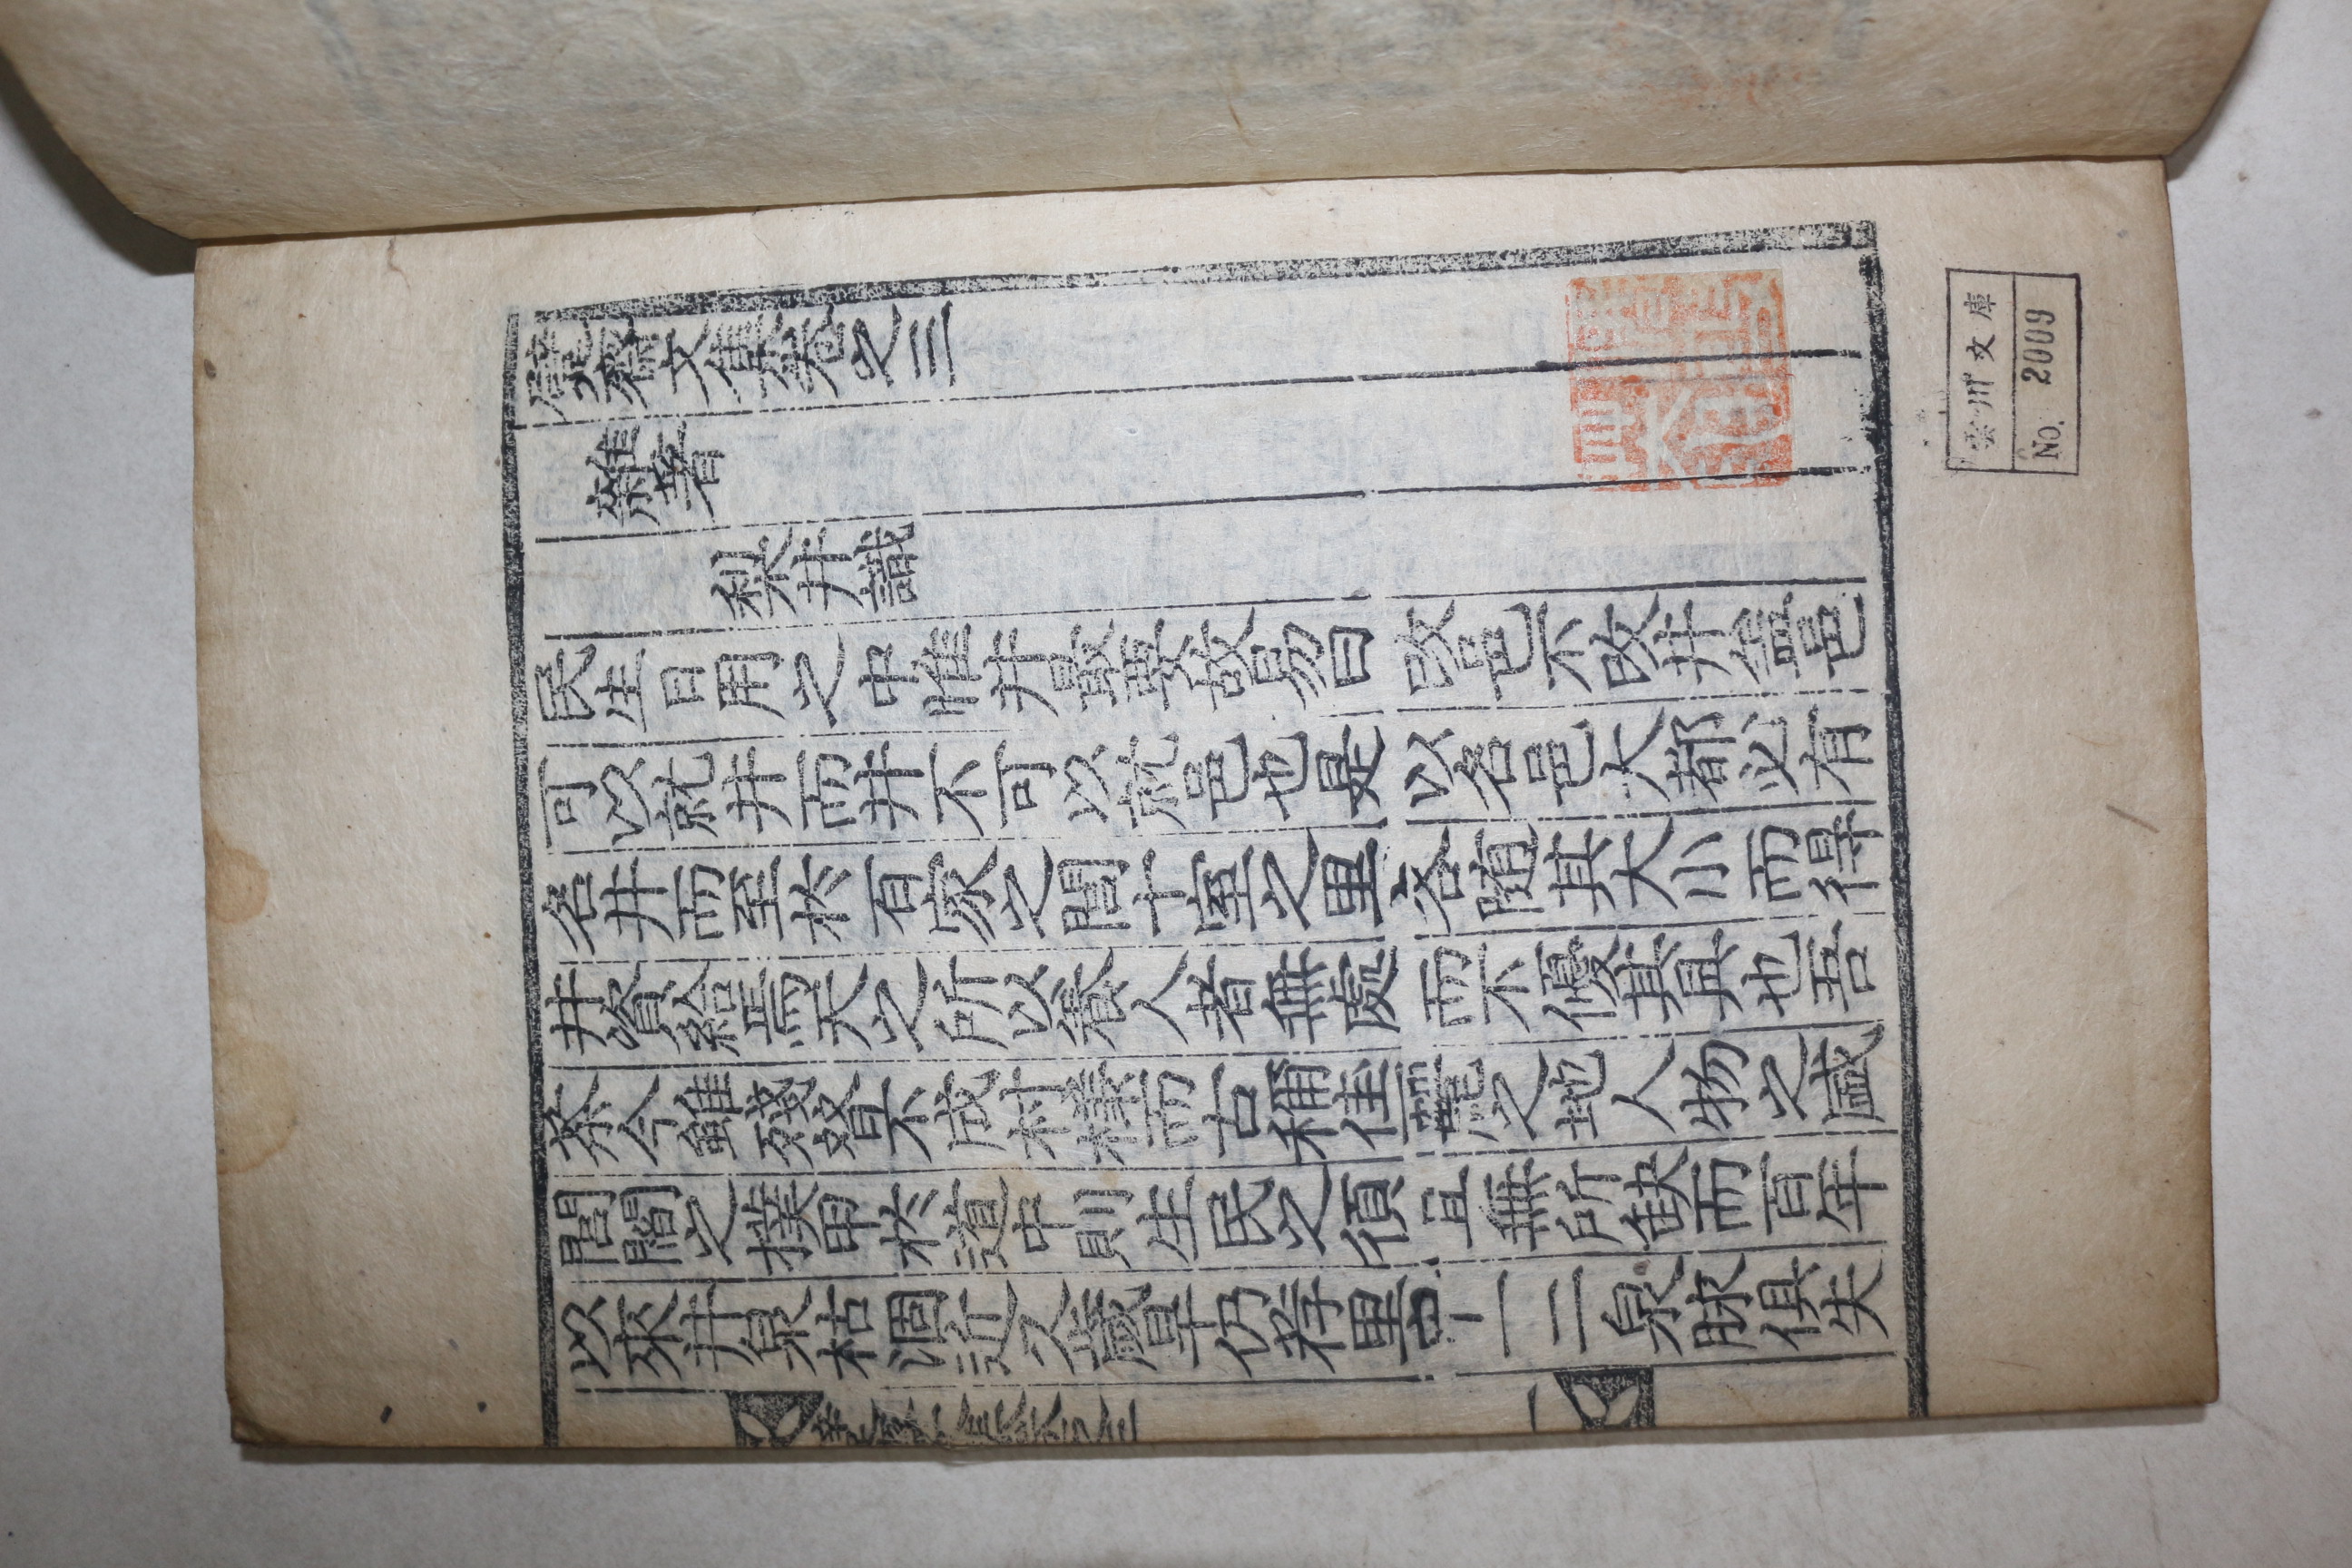 隱文集卷之三
雜著
梨井識
民生日用之中惟井最要故易曰改邑不改井盖邑
可以就井而井不可以就邑也是以名邑大都必有
名井而至於百家之閭十室之里各隨其大小而得
井資給焉天之所以養人者無處而不優其具也吾
今雖殘替不成村樣而古稱佳麗之地人物之盛
閭閻之撲甲於道中則生民之須且無所缺而百年
以來井泉枯涸近久歲旱仍荐里一二泉脉俱失
雲川文庫
No. 2009